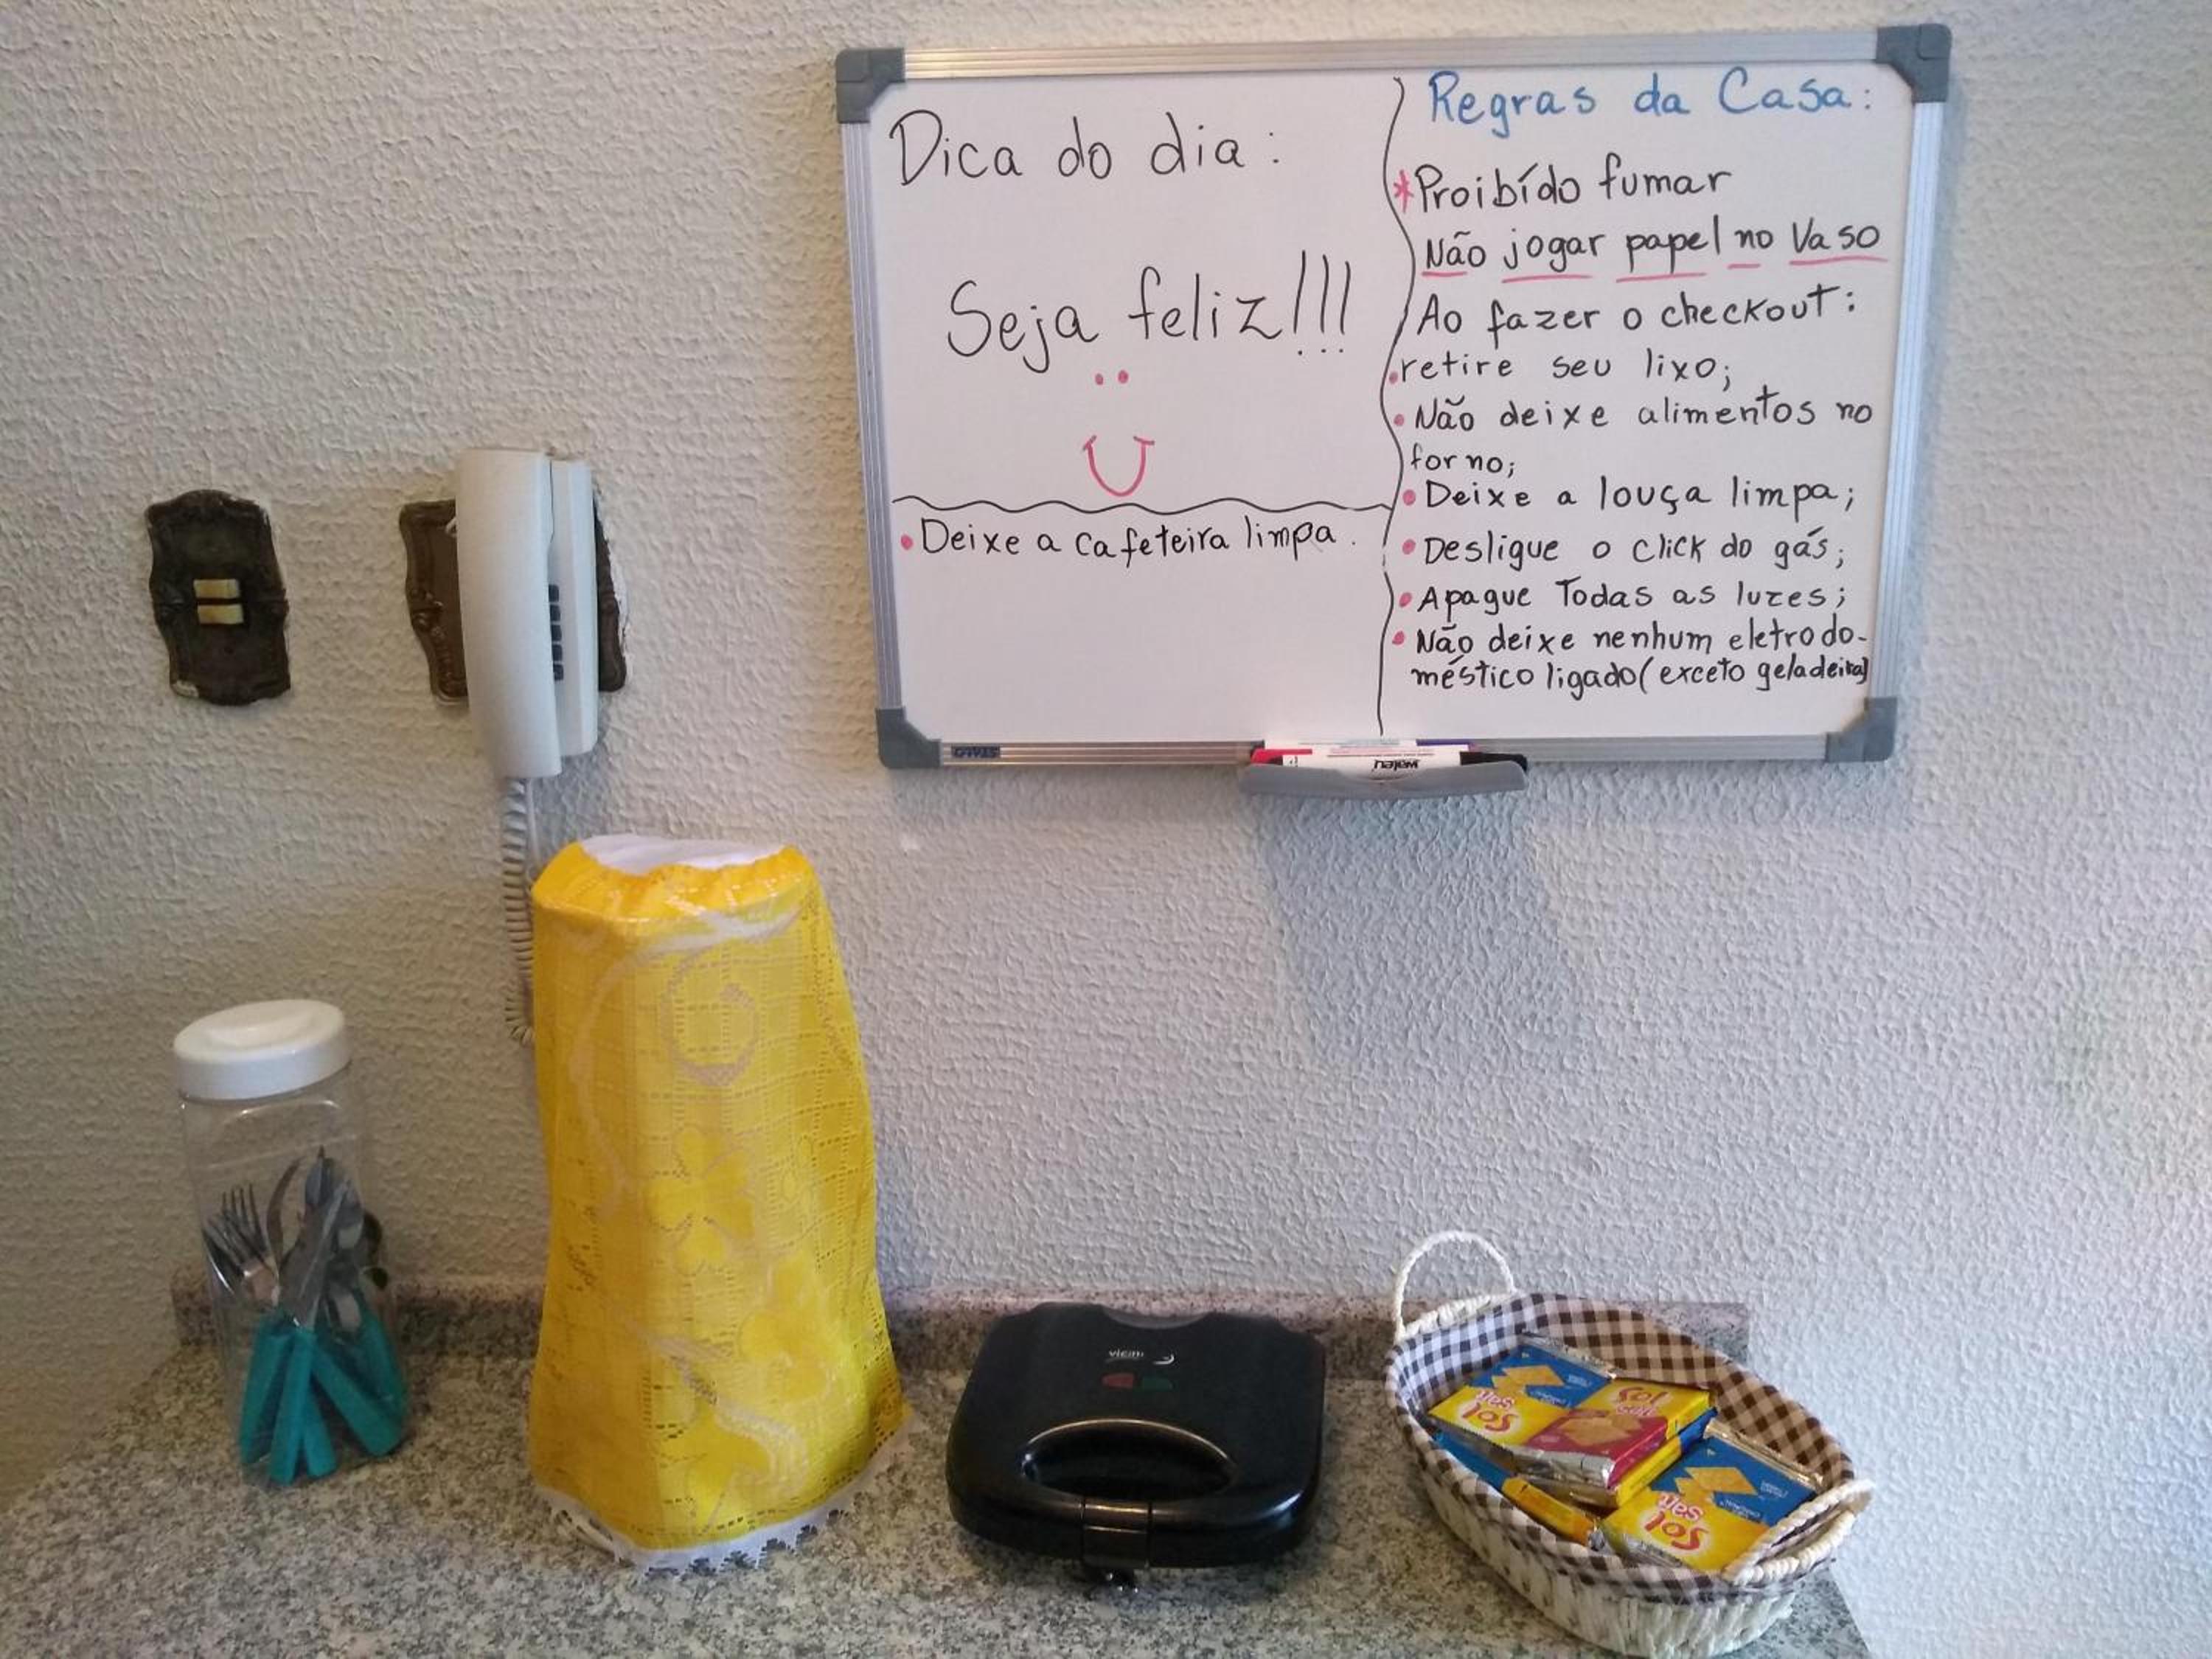 Dica do dia:
Seja feliz!!!
• Deixe a cafeteira limpa.
Regras da Casa:
*Proibído fumar
Não jogar papel no Vaso
Ao fazer o checkout:
•retire seu lixo;
• Não deixe alimentos no
forno;
• Deixe a louça limpa;
• Desligue o click do gás;
• Apague Todas as luzes;
• Não deixe nenhum eletrodo-
méstico ligado (exceto geladeira)
STALO
vicini
Sol
Salt
Sol
Salt
Sol
Salt